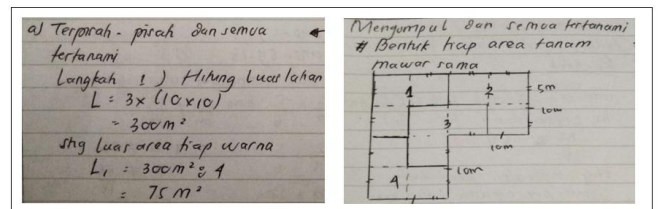 a) Terpisah - pisah dan semua
tertanami
Langkah 1) Hitung luas lahan
L = 3x (10x10)
= 300 m²
shg luas area tiap warna
L₁ = 300m² : 4
= 75 m²
Mengumpul dan semua tertanami
# Bentuk tiap area tanam
mawar sama
1
2
5m
10m
3
10m
10m
4